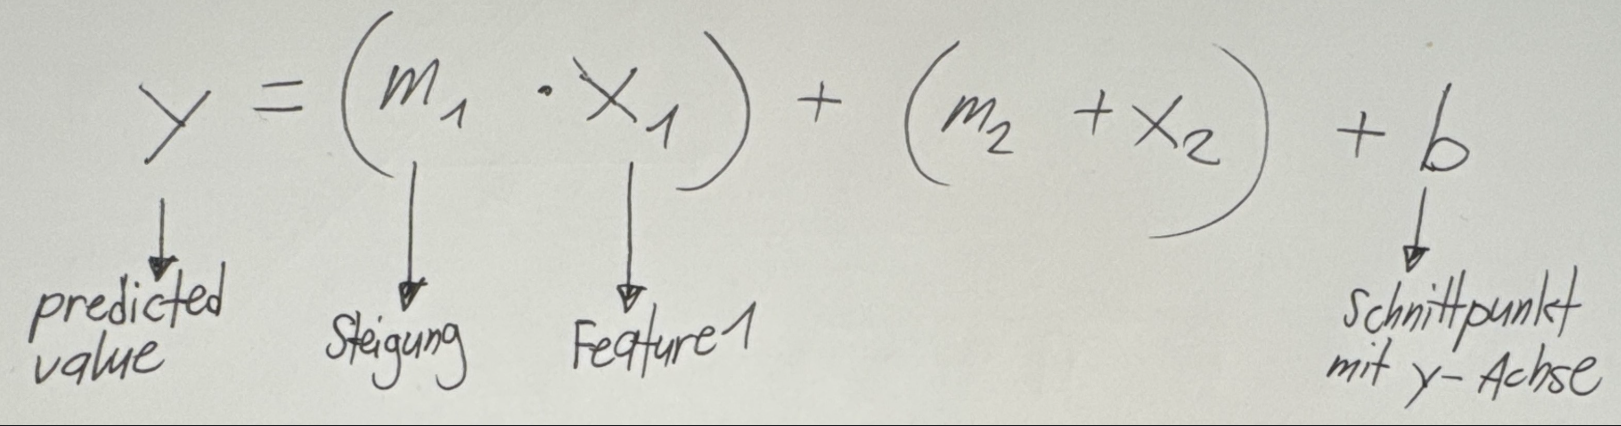 y = (m₁ · x₁) + (m₂ + x₂) + b
predicted
value
Steigung
Feature 1
Schnittpunkt
mit y-Achse